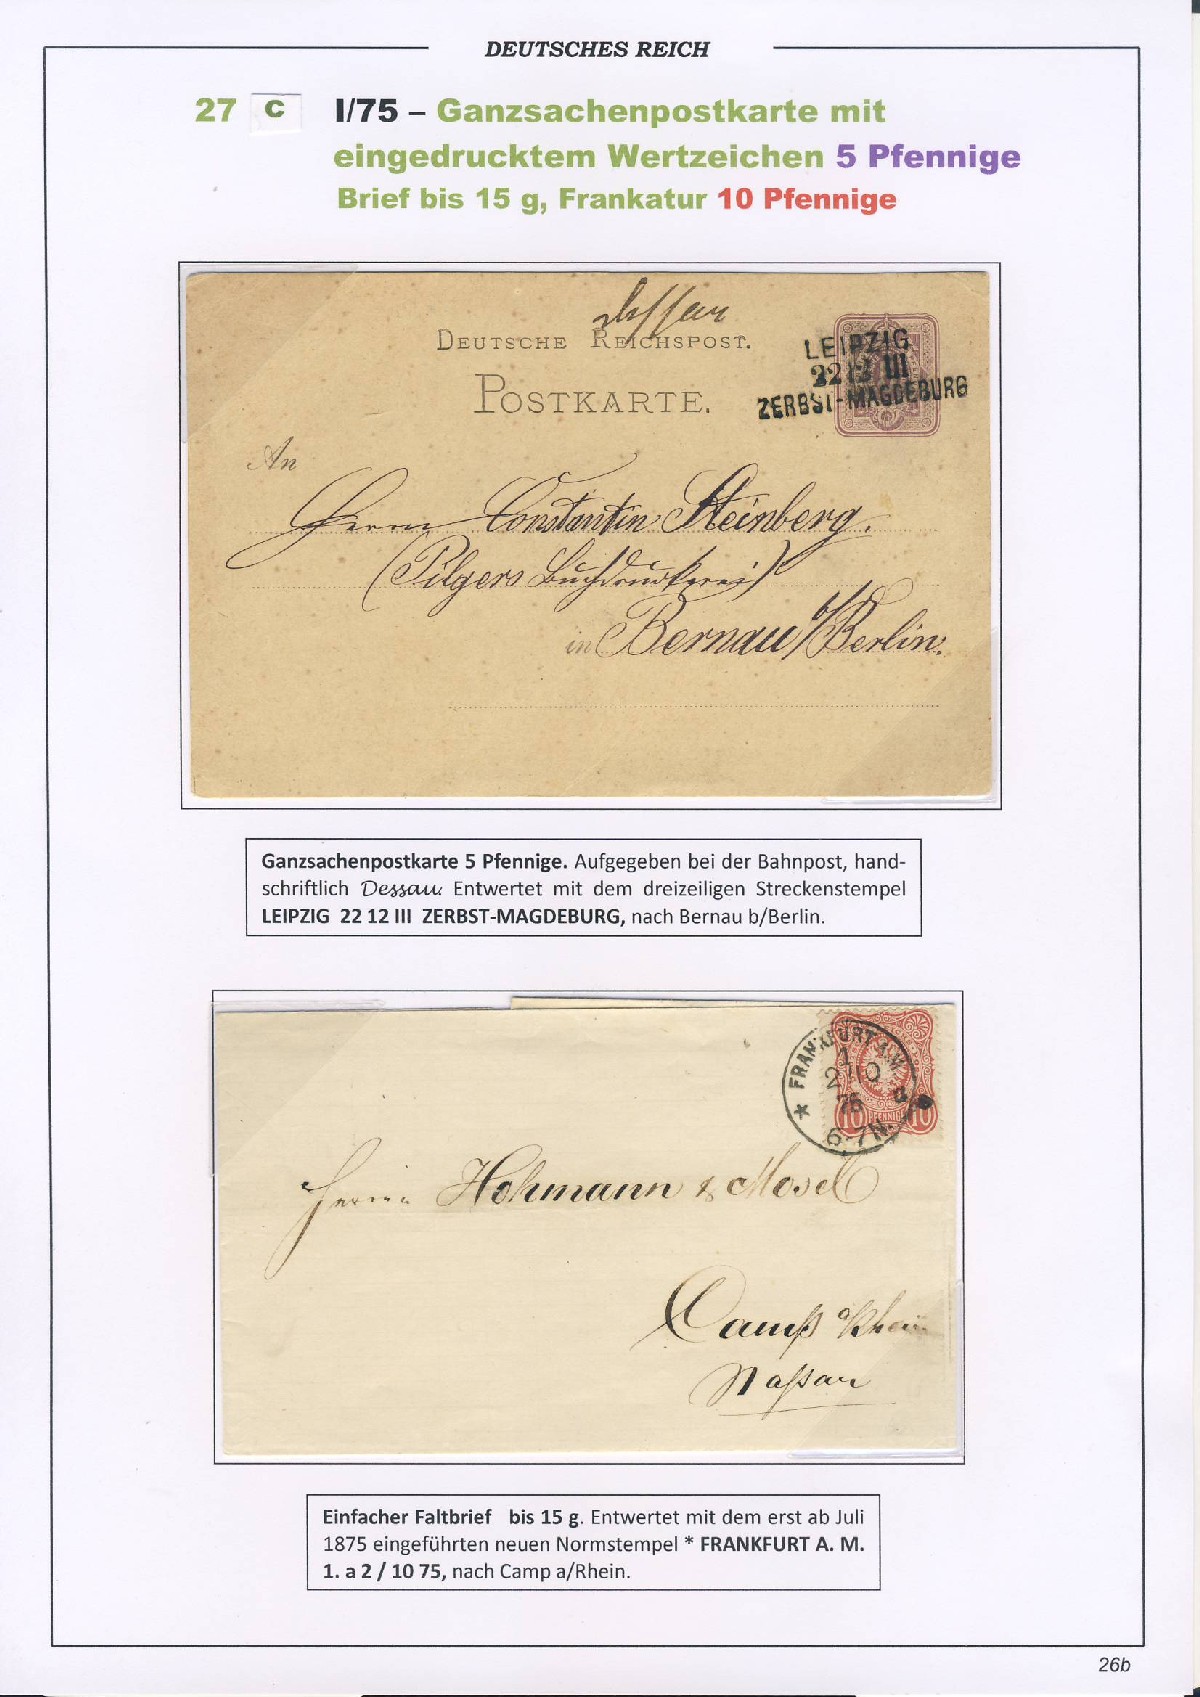 DEUTSCHES REICH
27 C I/75 – Ganzsachenpostkarte mit
eingedrucktem Wertzeichen 5 Pfennige
Brief bis 15 g, Frankatur 10 Pfennige
Dessau
DEUTSCHE REICHSPOST.
POSTKARTE.
LEIPZIG
22 12 III
ZERBST-MAGDEBURG
An
Herrn Constantin Steinberg.
(Pilgers Buchdruckerei)
in Bernau b/Berlin.
Ganzsachenpostkarte 5 Pfennige. Aufgegeben bei der Bahnpost, hand-
schriftlich Dessau. Entwertet mit dem dreizeiligen Streckenstempel
LEIPZIG 22 12 III ZERBST-MAGDEBURG, nach Bernau b/Berlin.
* FRANKFURT A. M.
1 a
2 10
75
6-7N.
10 PFENNIGE 10
Herrn Hohmann & Mosel
Camp a/Rhein
Nassau
Einfacher Faltbrief bis 15 g. Entwertet mit dem erst ab Juli
1875 eingeführten neuen Normstempel * FRANKFURT A. M.
1. a 2 / 10 75, nach Camp a/Rhein.
26b